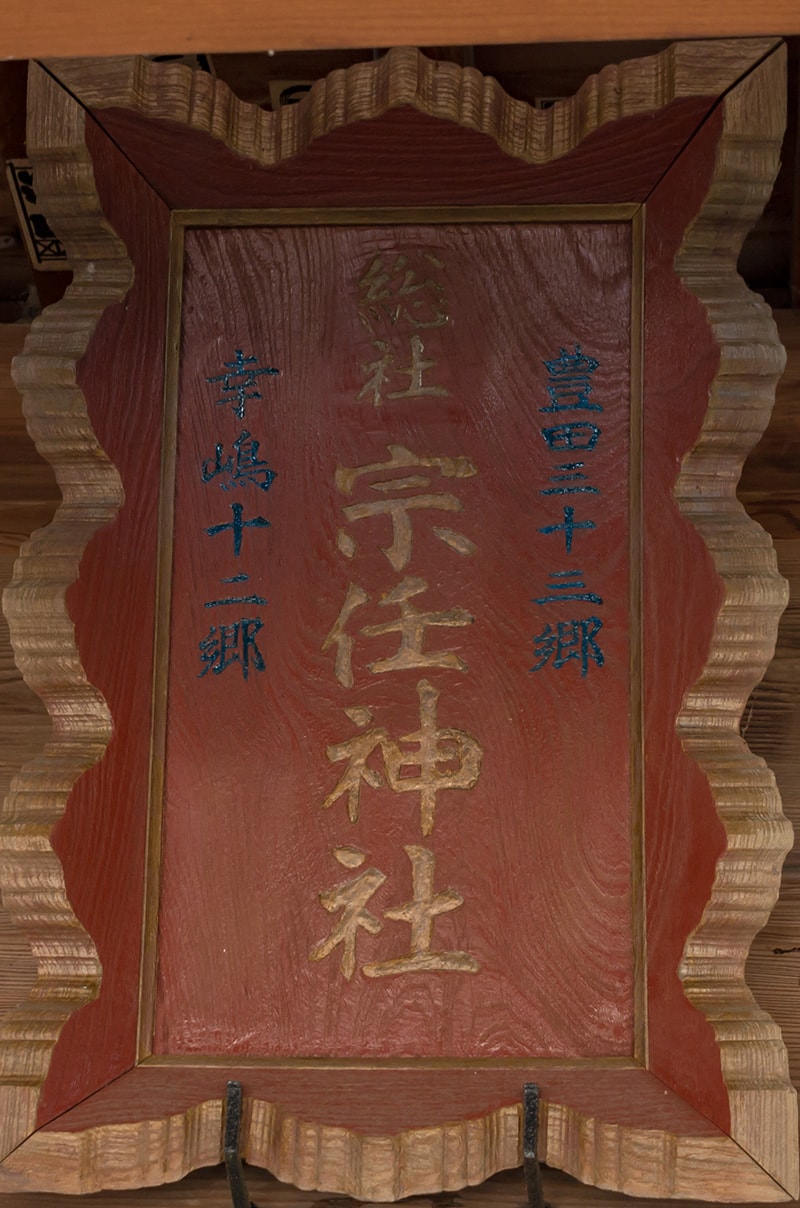 豊田三十三郷
総社
宗任神社
幸嶋十二郷